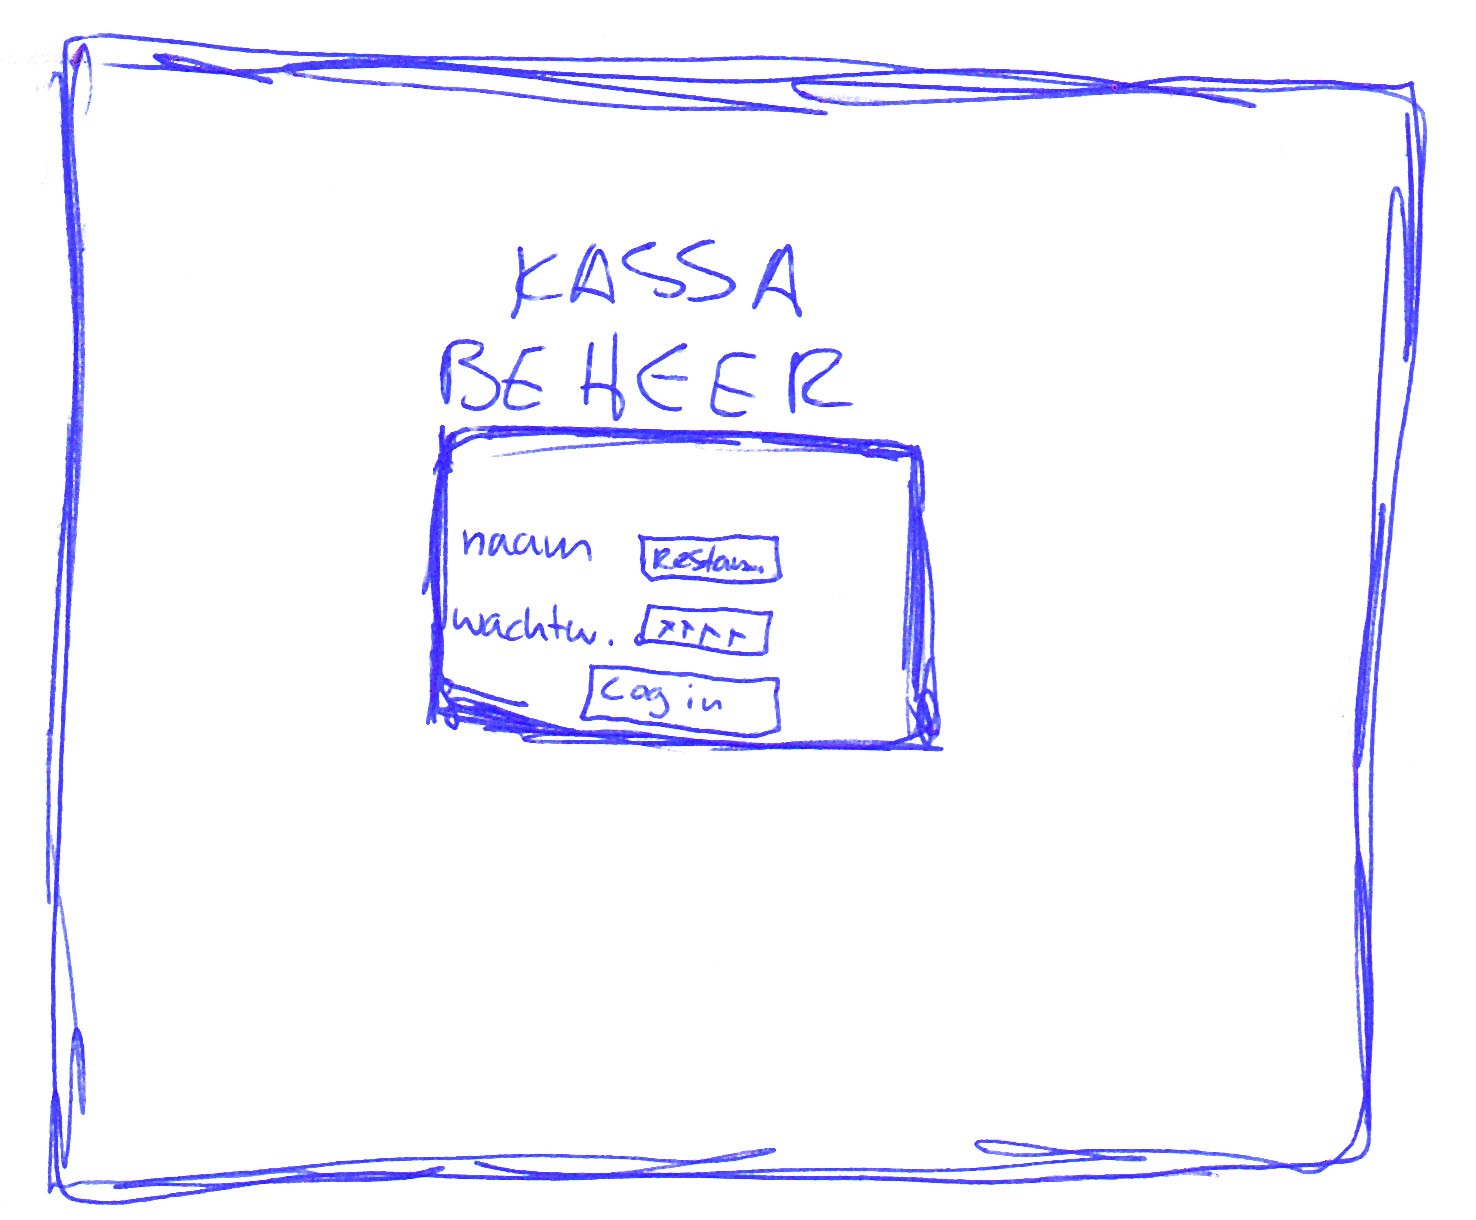 KASSA
BEHEER
naam Restau...
wachtw. ****
Log in